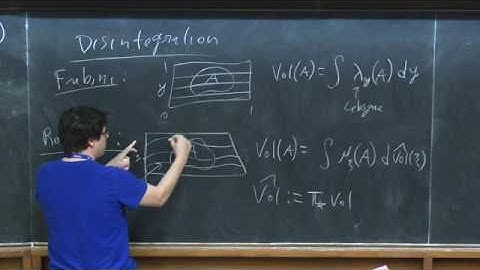 Disintegration
Fubini:
1
A
y
0 1
Vol(A) = ∫ λ_y(A) dy
Lebesgue
Ro :
Vol(A) = ∫ μ_ξ(A) d V̂ol(ξ)
V̂ol := π_* Vol